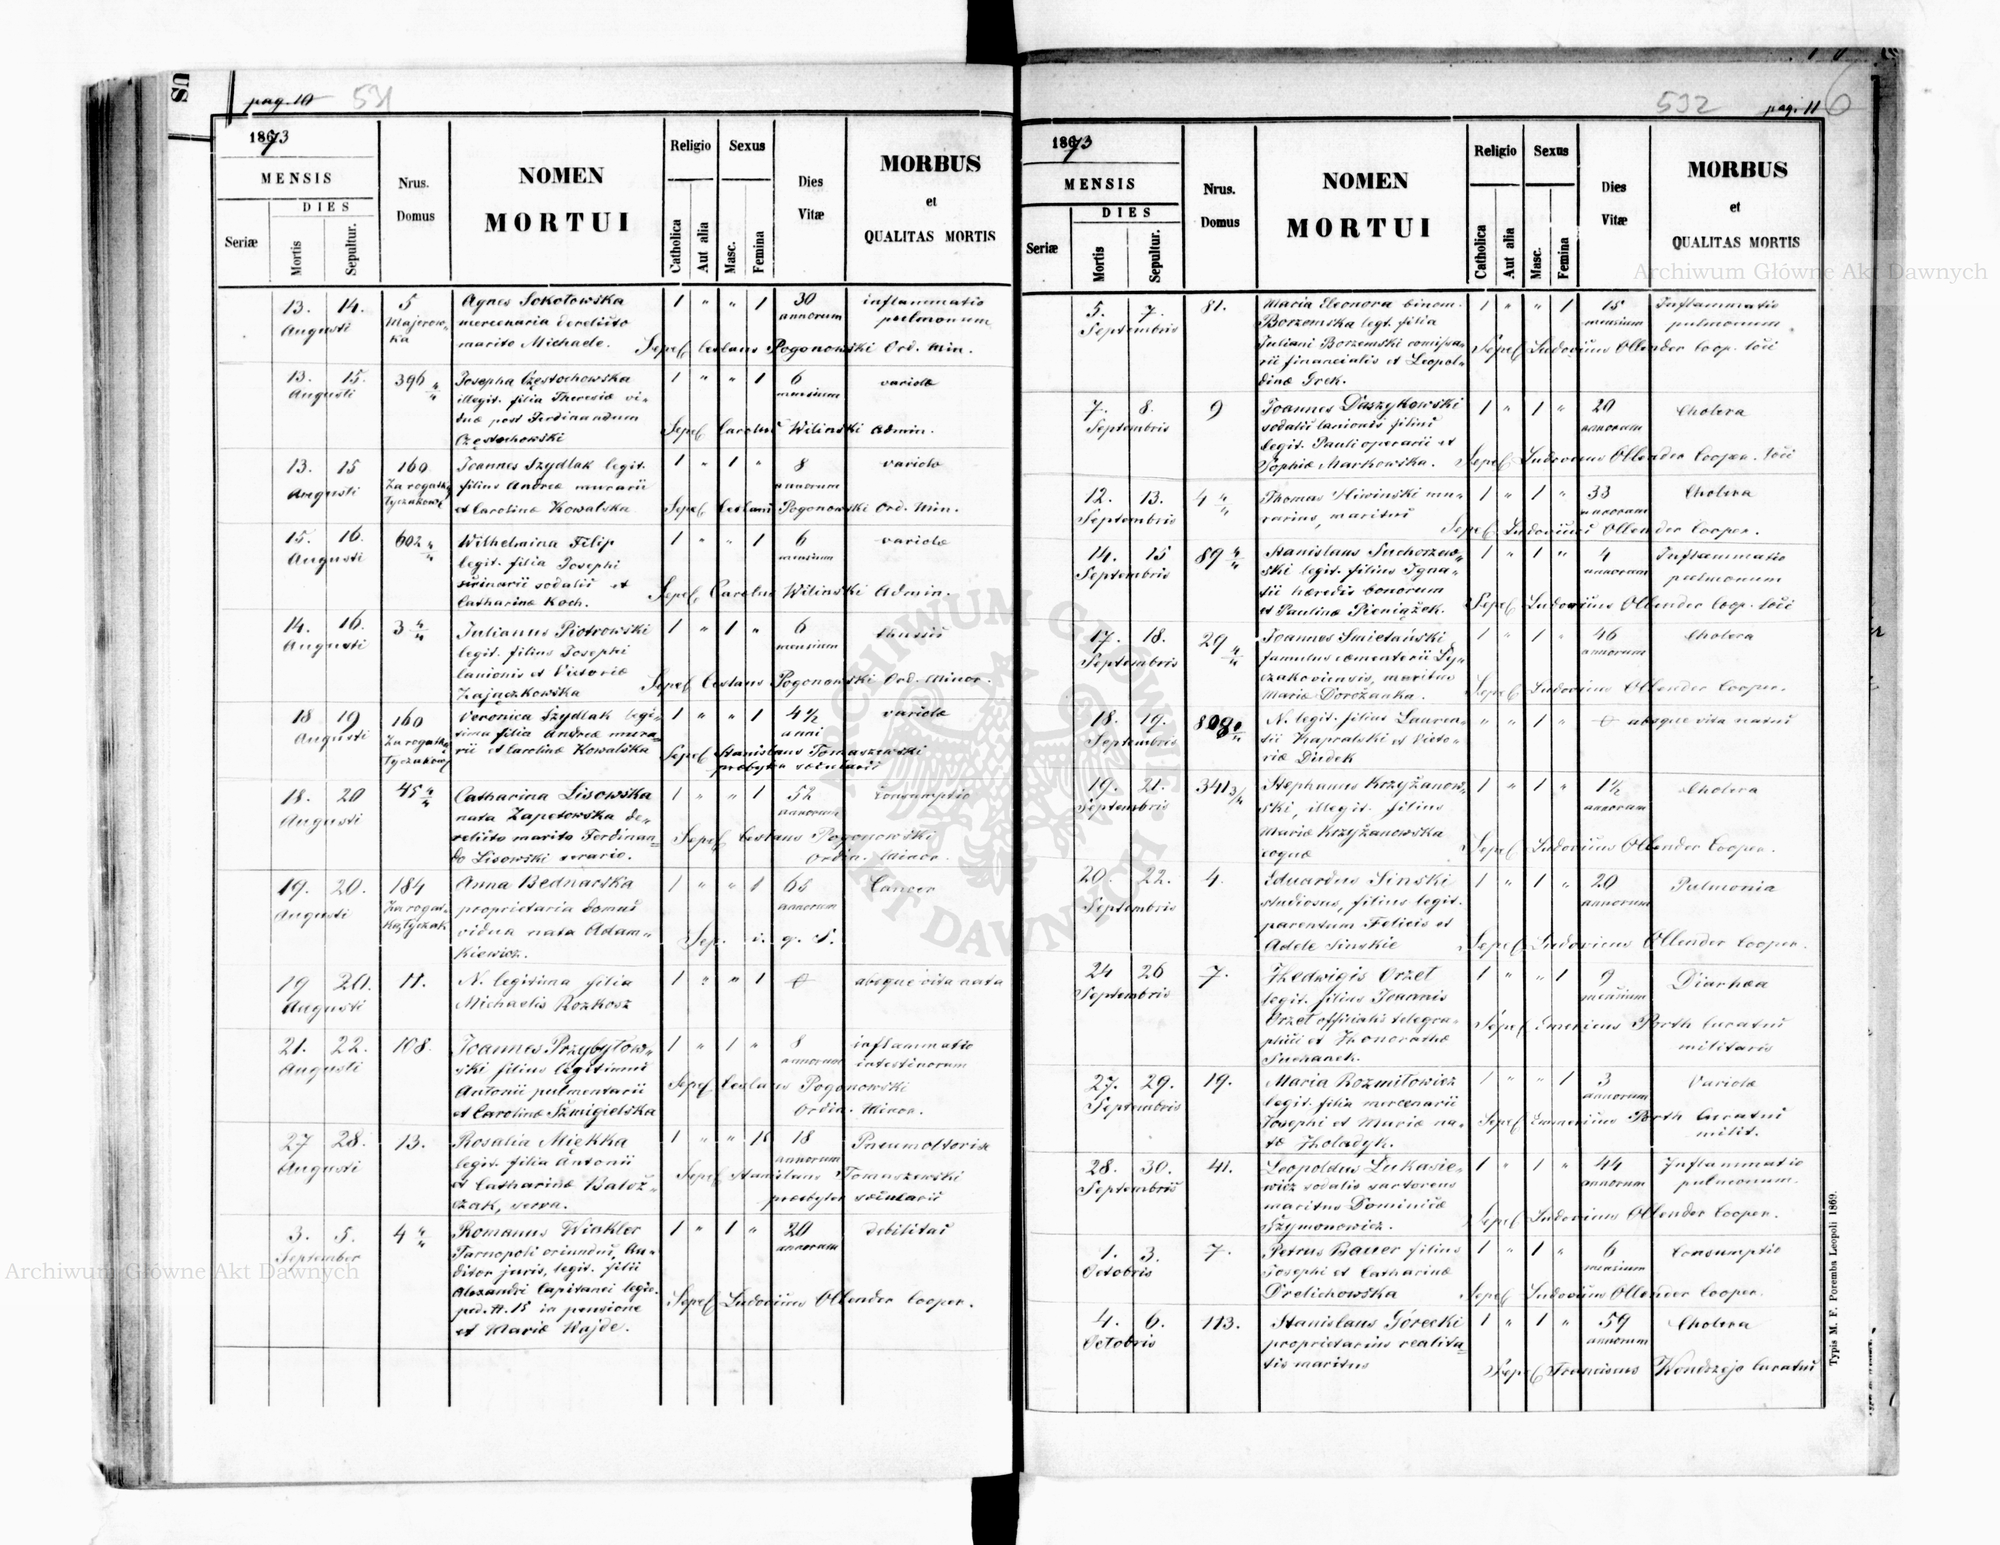 pag. 10 531
1873
MENSIS
DIES
Seriæ
Mortis
Sepultur.
Nrus.
Domus
NOMEN
MORTUI
Religio
Catholica
Aut alia
Sexus
Masc.
Femina
Dies
Vitæ
MORBUS
et
QUALITAS MORTIS
13. 14. 5 Agnes Sokołowska 1 " " 1 30 inflammatio
Augusti Majerow- mercenaria derelicto annorum pulmonum
ka marito Michaele. Sepel. Ceslaus Pogonowski Ord. Min.
13. 15. 396 4/4 Josepha Częstochowska 1 " " 1 6 variolæ
Augusti illegit. filia Theresiæ vi- mensium
duæ post Ferdinandum Sepel. Carolus Wilinski Admin.
Częstochowski
13. 15 160 Joannes Szydlak legit. 1 " 1 " 8 variolæ
Augusti Za rogatką filius Andreæ murarii annorum
Łyczakows. et Carolinæ Kowalska Sepel. Ceslaus Pogonowski Ord. Min.
15. 16. 602 4/4 Wilhelmina Filip 1 " " 1 6 variolæ
Augusti legit. filia Josephi mensium
sodalis et Sepel. Carolus Wilinski Admin.
Catharinæ Koch.
14. 16. 3 4/4 Julianus Piotrowski 1 " 1 " 6 thussis
Augusti legit. filius Josephi mensium
lanionis et Victoriæ Sepel. Ceslaus Pogonowski Ord. Minor.
Zajączkowska
18 19 160 Veronica Szydlak legi- 1 " " 1 4 1/2 variolæ
Augusti Za rogatką tima filia Andreæ mura- anni
Łyczakows. rii et Carolinæ Kowalska Sepel. Stanislaus Tomaszewski
presbyter sæcularis
18. 20 45 4/4 Catharina Lisowska 1 " " 1 52 Consumptio
Augusti nata Zapetowska de- annorum
relicta marito Ferdinan- Sepel. Ceslaus Pogonowski
do Lisowski serario. Ordin. Minor.
19. 20. 184 Anna Bednarska 1 " " 1 68 Cancer
Augusti Za rogat- proprietaria domus annorum
ką Łyczak. vidua nata Adam- Sep. i. q. s.
kiewicz.
19 20. 11. N. legitima filia 1 " " 1 absque vita nata
Augusti Michaelis Rozkosz
21. 22. 108. Joannes Przybyłow- 1 " 1 " 8 inflammatio
Augusti ski filius legitimus annorum intestinorum
Antonii pulmentarii Sepel. Ceslaus Pogonowski
et Carolinæ Szmigielska Ordin. Minor.
27 28. 13. Rosalia Miękka 1 " " 1 18
Augusti legit. filia Antonii annorum
et Catharinæ Sepel. Stanislaus Tomaszewski
serva. presbyter sæcularis
3. 5. 4 4/4 Romanus Winkler 1 " 1 " 20 debilitas
September Tarnopoli oriundus, Au- annorum
ditor juris, legit. filius
Alexandri Capitanei legio. Sepel. Ludovicus Ollender Cooper.
ped. N. 15 in pensione
et Mariæ Wajde.
532 pag. 11
1873
MENSIS
DIES
Seriæ
Mortis
Sepultur.
Nrus.
Domus
NOMEN
MORTUI
Religio
Catholica
Aut alia
Sexus
Masc.
Femina
Dies
Vitæ
MORBUS
et
QUALITAS MORTIS
5. 7. 81. Maria Eleonora binom. 1 " " 1 15 Inflammatio
Septembris Borzemska legt. filia mensium pulmonum.
Juliani Borzemski comissa- Sepel. Ludovicus Ollender Coop. loci
rii financialis et Leopol-
dinæ Grek.
7. 8. 9 Joannes Daszykowski 1 " 1 " 20 Cholera
Septembris sodalis lanionis filius annorum
legit. Pauli operarii et
Sophiæ Markowska. Sepel. Ludovicus Ollender Cooper. loci
12. 13. 4 4/4 Thomas Iliwinski mu- 1 " 1 " 33 Cholera
Septembris rarius, maritus annorum
Sepel. Ludovicus Ollender Cooper.
14. 15 89 4/4 Stanislaus Suchorzew- 1 " 1 " 4 Inflammatio
Septembris ski legit. filius Igna- annorum pulmonum
tii hæredis bonorum
et Paulinæ Pieniążek. Sepel. Ludovicus Ollender Coop. loci
17. 18. 29 4/4 Joannes Smietański 1 " 1 " 46 Cholera
Septembris famulus cæmenterii Ly- annorum
czakoviensis, maritus
Mariæ Dorożanka. Sepel. Ludovicus Ollender Cooper.
18. 19. N. legit. filius Lauren- " " 1 " absque vita natus
Septembris tii Kapralski et Victo-
riæ Dudek
19. 21. 341 3/4 Stephanus Krzyżanow- 1 " 1 " 1 1/2 Cholera
Septembris ski, illegit. filius annorum
Mariæ Krzyżanowska
coquæ Sepel. Ludovicus Ollender Cooper.
20. 22. 4. Eduardus Sinski 1 " 1 " 20 Pulmonia
Septembris studiosus, filius legit. annorum
parentum Felicis et
Adele Sinskie Sepel. Ludovicus Ollender Cooper.
24 26 7. Hedwigis Orzet 1 " " 1 9 Diarhæa
Septembris legit. filius Joannis mensium
Orzet officialis telegra- Sepel. Emericus Porth Curatus
phici et Honorathæ militaris
Suchanek.
27. 29. 19. Maria Rozmiłowicz 1 " " 1 3 Variolæ
Septembris legit. filia mercenarii annorum
Josephi et Mariæ na- Sepel. Emmericus Porth Curatus
tæ Holadyk. milit.
28. 30. 41. Leopoldus Łukasie- 1 " 1 " 44 Inflammatio
Septembris wicz sodalis sartoreus annorum pulmonum.
maritus Dominicæ
Szymonowicz. Sepel. Ludovicus Ollender Cooper.
1. 3. 7. Petrus Bauer filius 1 " 1 " 6 Consumptio
Octobris Josephi et Catharinæ mensium
Drelichowska Sepel. Ludovicus Ollender Cooper.
4. 6. 113. Stanislaus Górecki 1 " 1 " 59 Cholera
Octobris proprietarius realita- annorum
tis maritus Sepel. Franciscus Wendzejo Curatus
Typis M. F. Poremba Leopoli 1869.
Archiwum Główne Akt Dawnych
Archiwum Główne Akt Dawnych
ARCHIWUM GŁÓWNE
AKT DAWNYCH